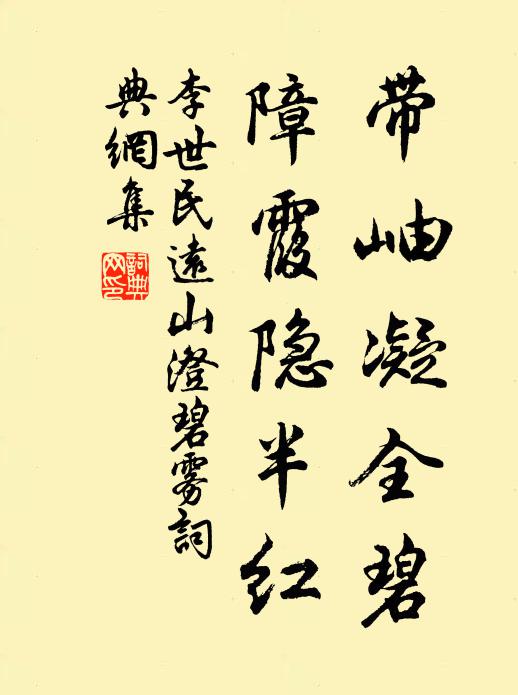 带岫凝全碧
障霞隐半红
李世民遠山澄碧雾詞
典網集
詞典
网印